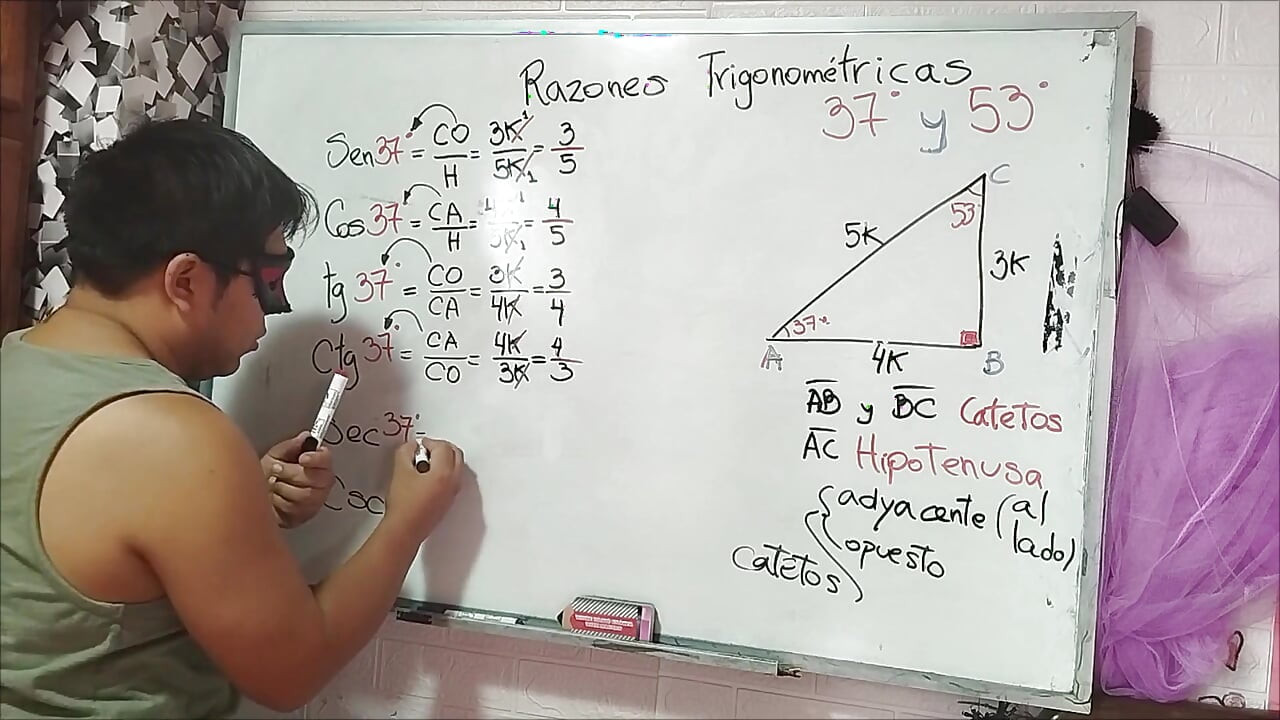 Razones Trigonométricas
37° y 53°
Sen37° = CO/H = 3K/5K = 3/5
Cos 37° = CA/H = 4K/5K = 4/5
tg 37° = CO/CA = 3K/4K = 3/4
Ctg 37° = CA/CO = 4K/3K = 4/3
Sec 37° =
Csc
C
53
5K
3K
37°
A
4K
B
AB y BC Catetos
AC Hipotenusa
Catetos
adyacente (al lado)
opuesto